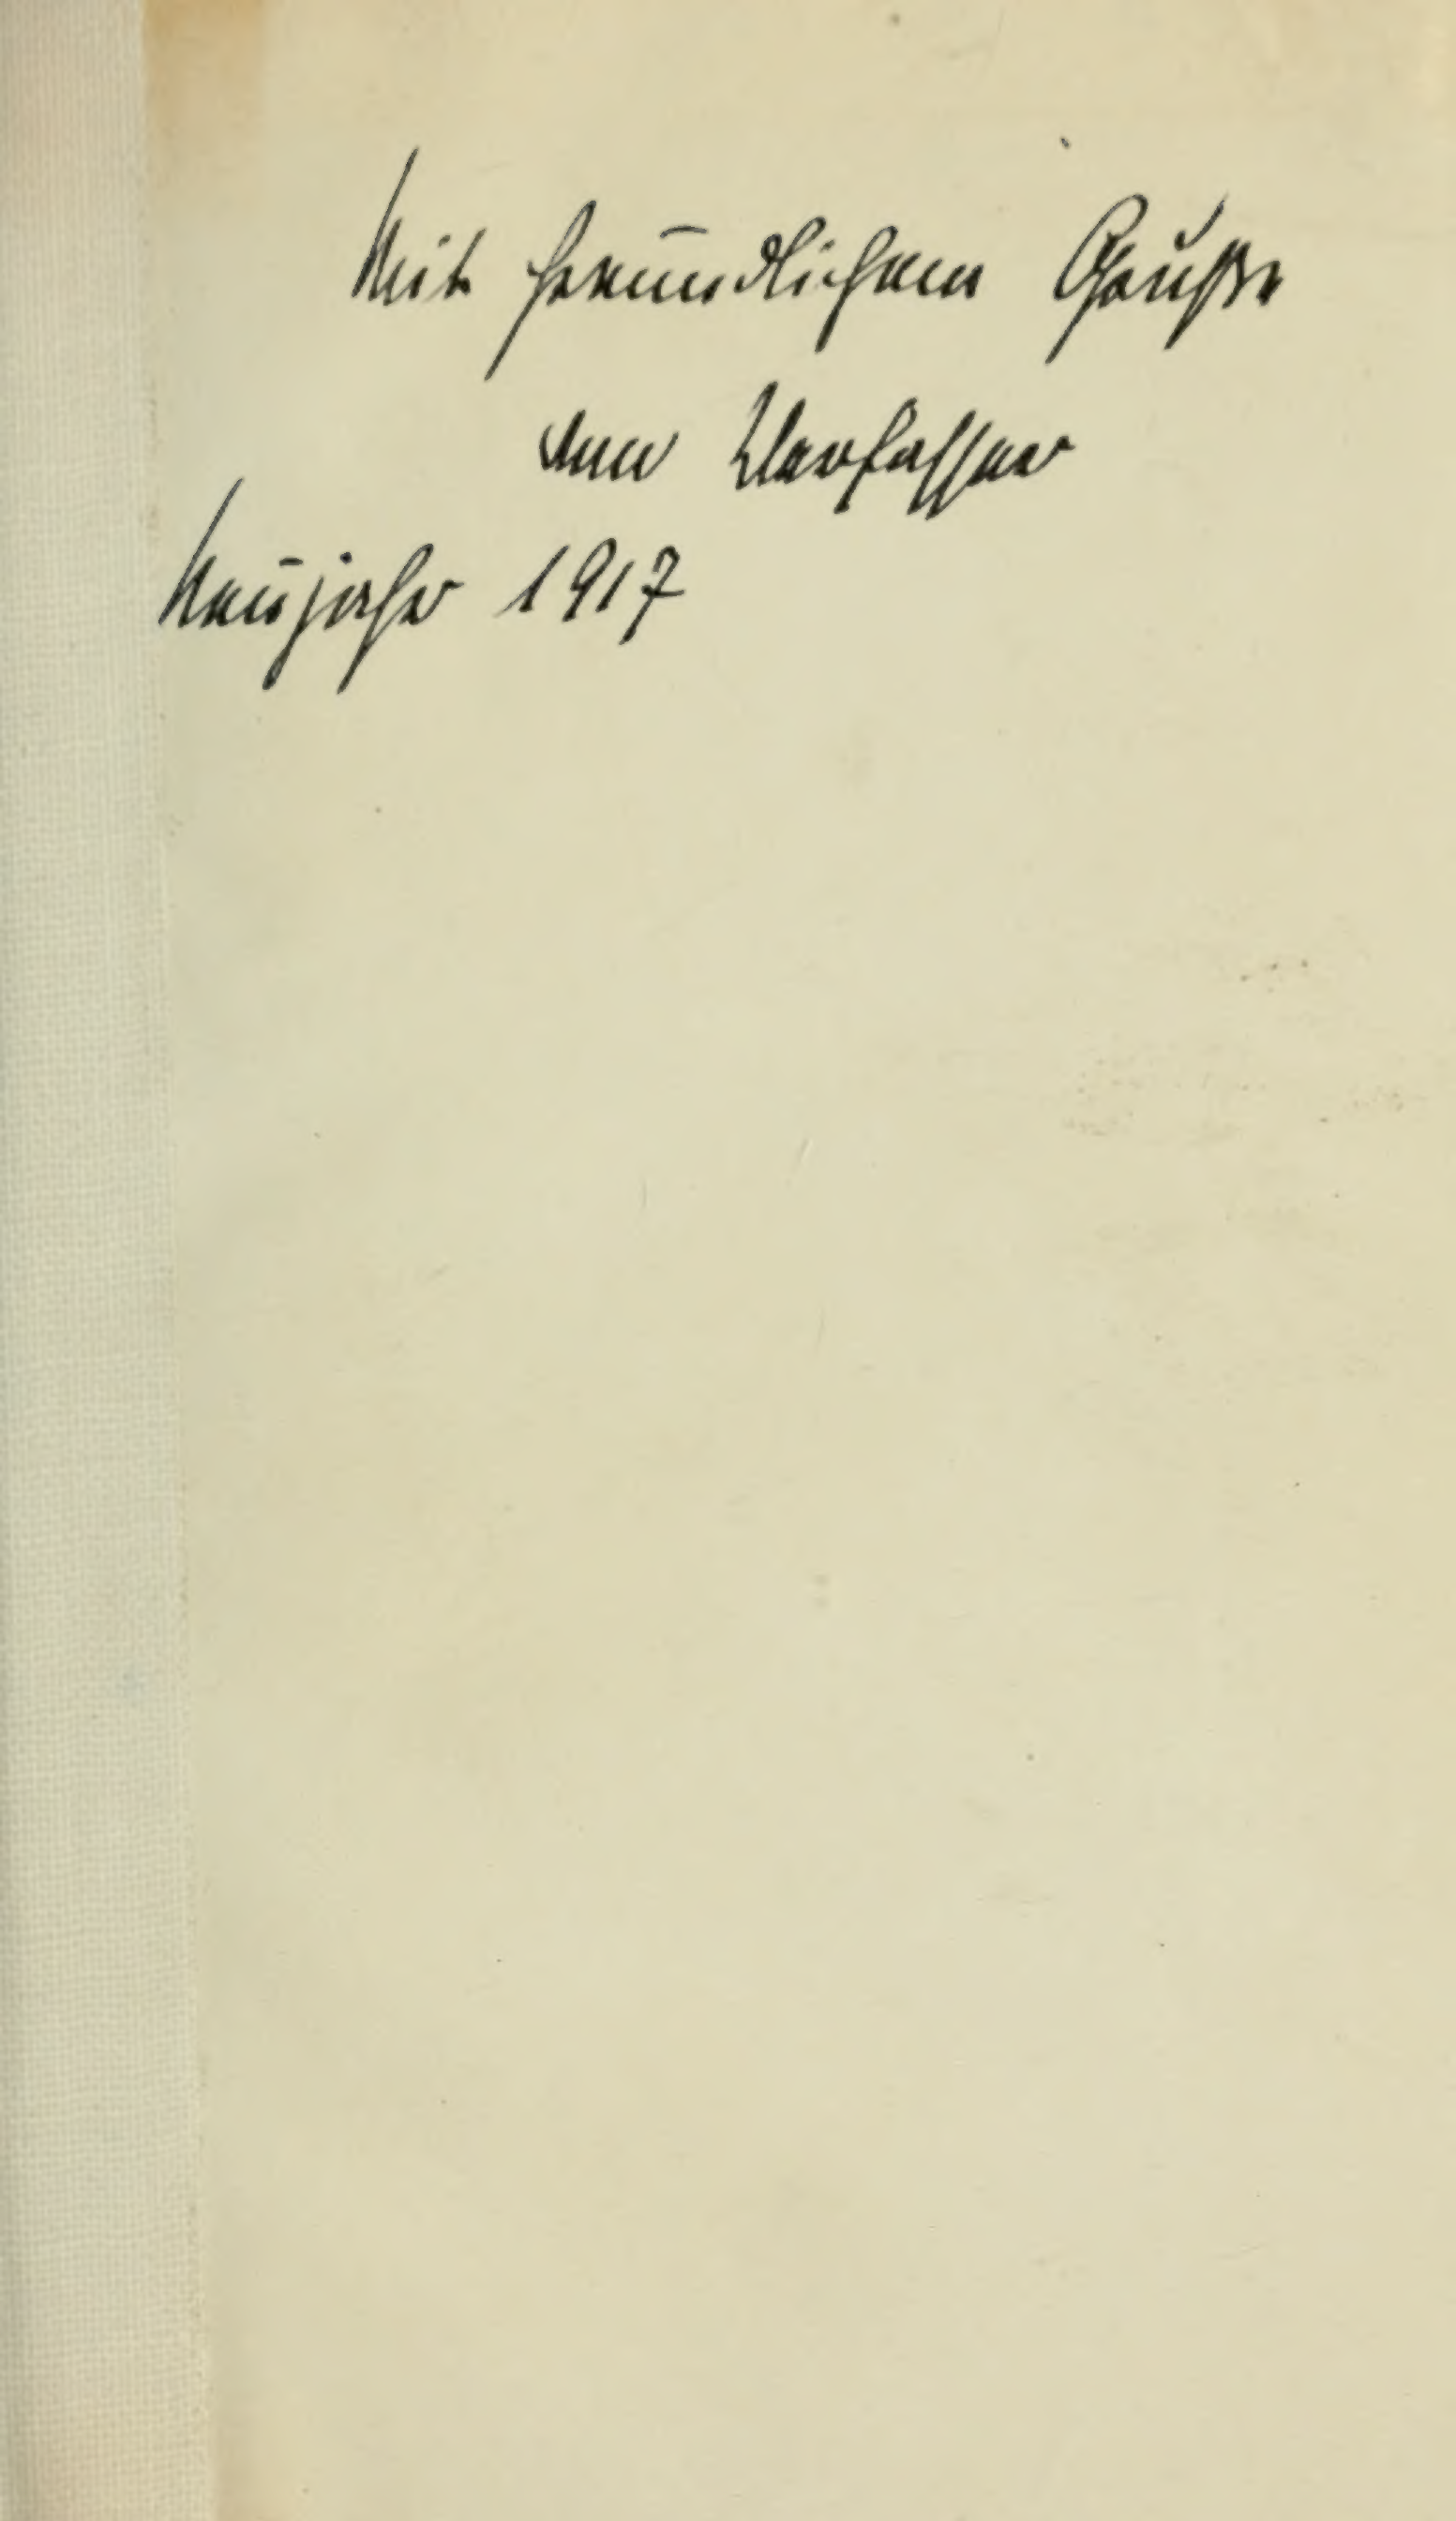 Mit freundlichem Gruße
vom Verfasser
Neujahr 1917